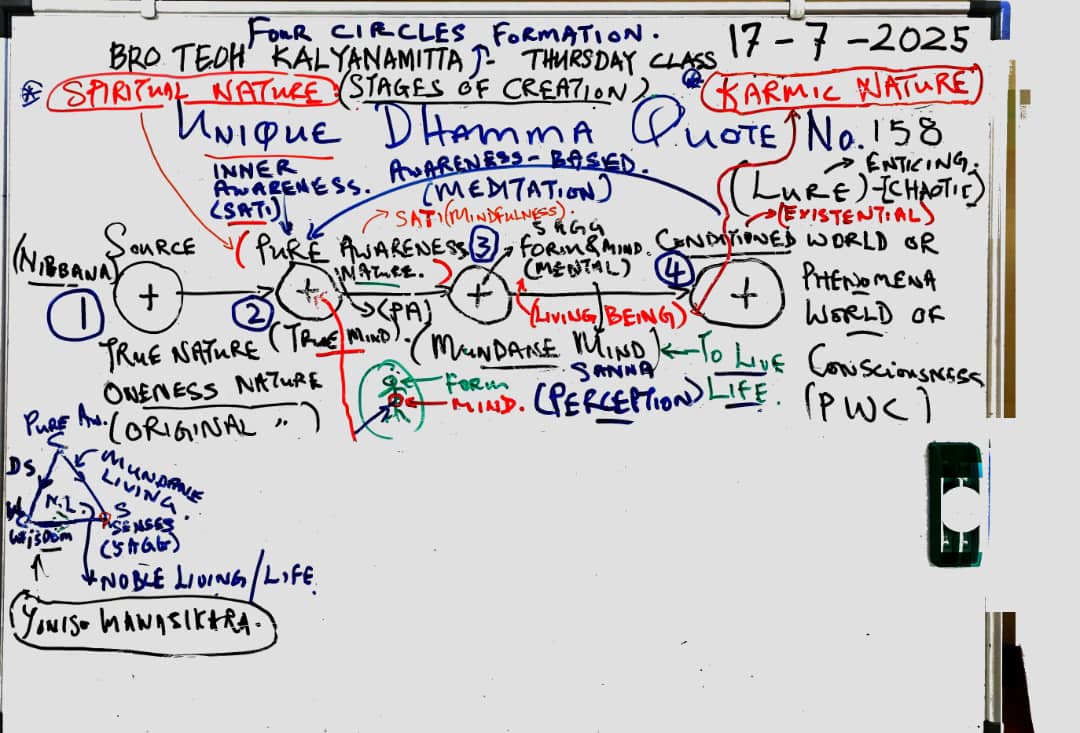 FOUR CIRCLES FORMATION.
17-7-2025
BRO TEOH KALYANAMITTA THURSDAY CLASS
* SPIRITUAL NATURE (STAGES OF CREATION) * KARMIC NATURE
UNIQUE DHAMMA QUOTE NO. 158
INNER AWARENESS. (SATI)
AWARENESS-BASED. (MEDITATION)
→ ENTICING.
(LURE)-[CHAOTIC)
→ (EXISTENTIAL)
→ SATI (MINDFULNESS).
(NIBBANA)
SOURCE
(PURE AWARENESS NATURE.)
5 AGG
FORM & MIND.
(MENTAL)
CONDITIONED WORLD OR
PHENOMENA
WORLD OF
CONSCIOUSNESS
(PWC)
1
+
2
+
3
+
4
+
→ (PA)
(LIVING BEING)
TRUE NATURE
(TRUE MIND).
(MUNDANE MIND) ← TO LIVE
LIFE.
ONENESS NATURE
(ORIGINAL " )
← FORM
← MIND.
SANNA
(PERCEPTION)
PURE AW.
C
DS
MUNDANE
LIVING
N.L.
W
WISDOM
S
SENSES
(5 AGG)
NOBLE LIVING/LIFE.
YONISO MANASIKARA.